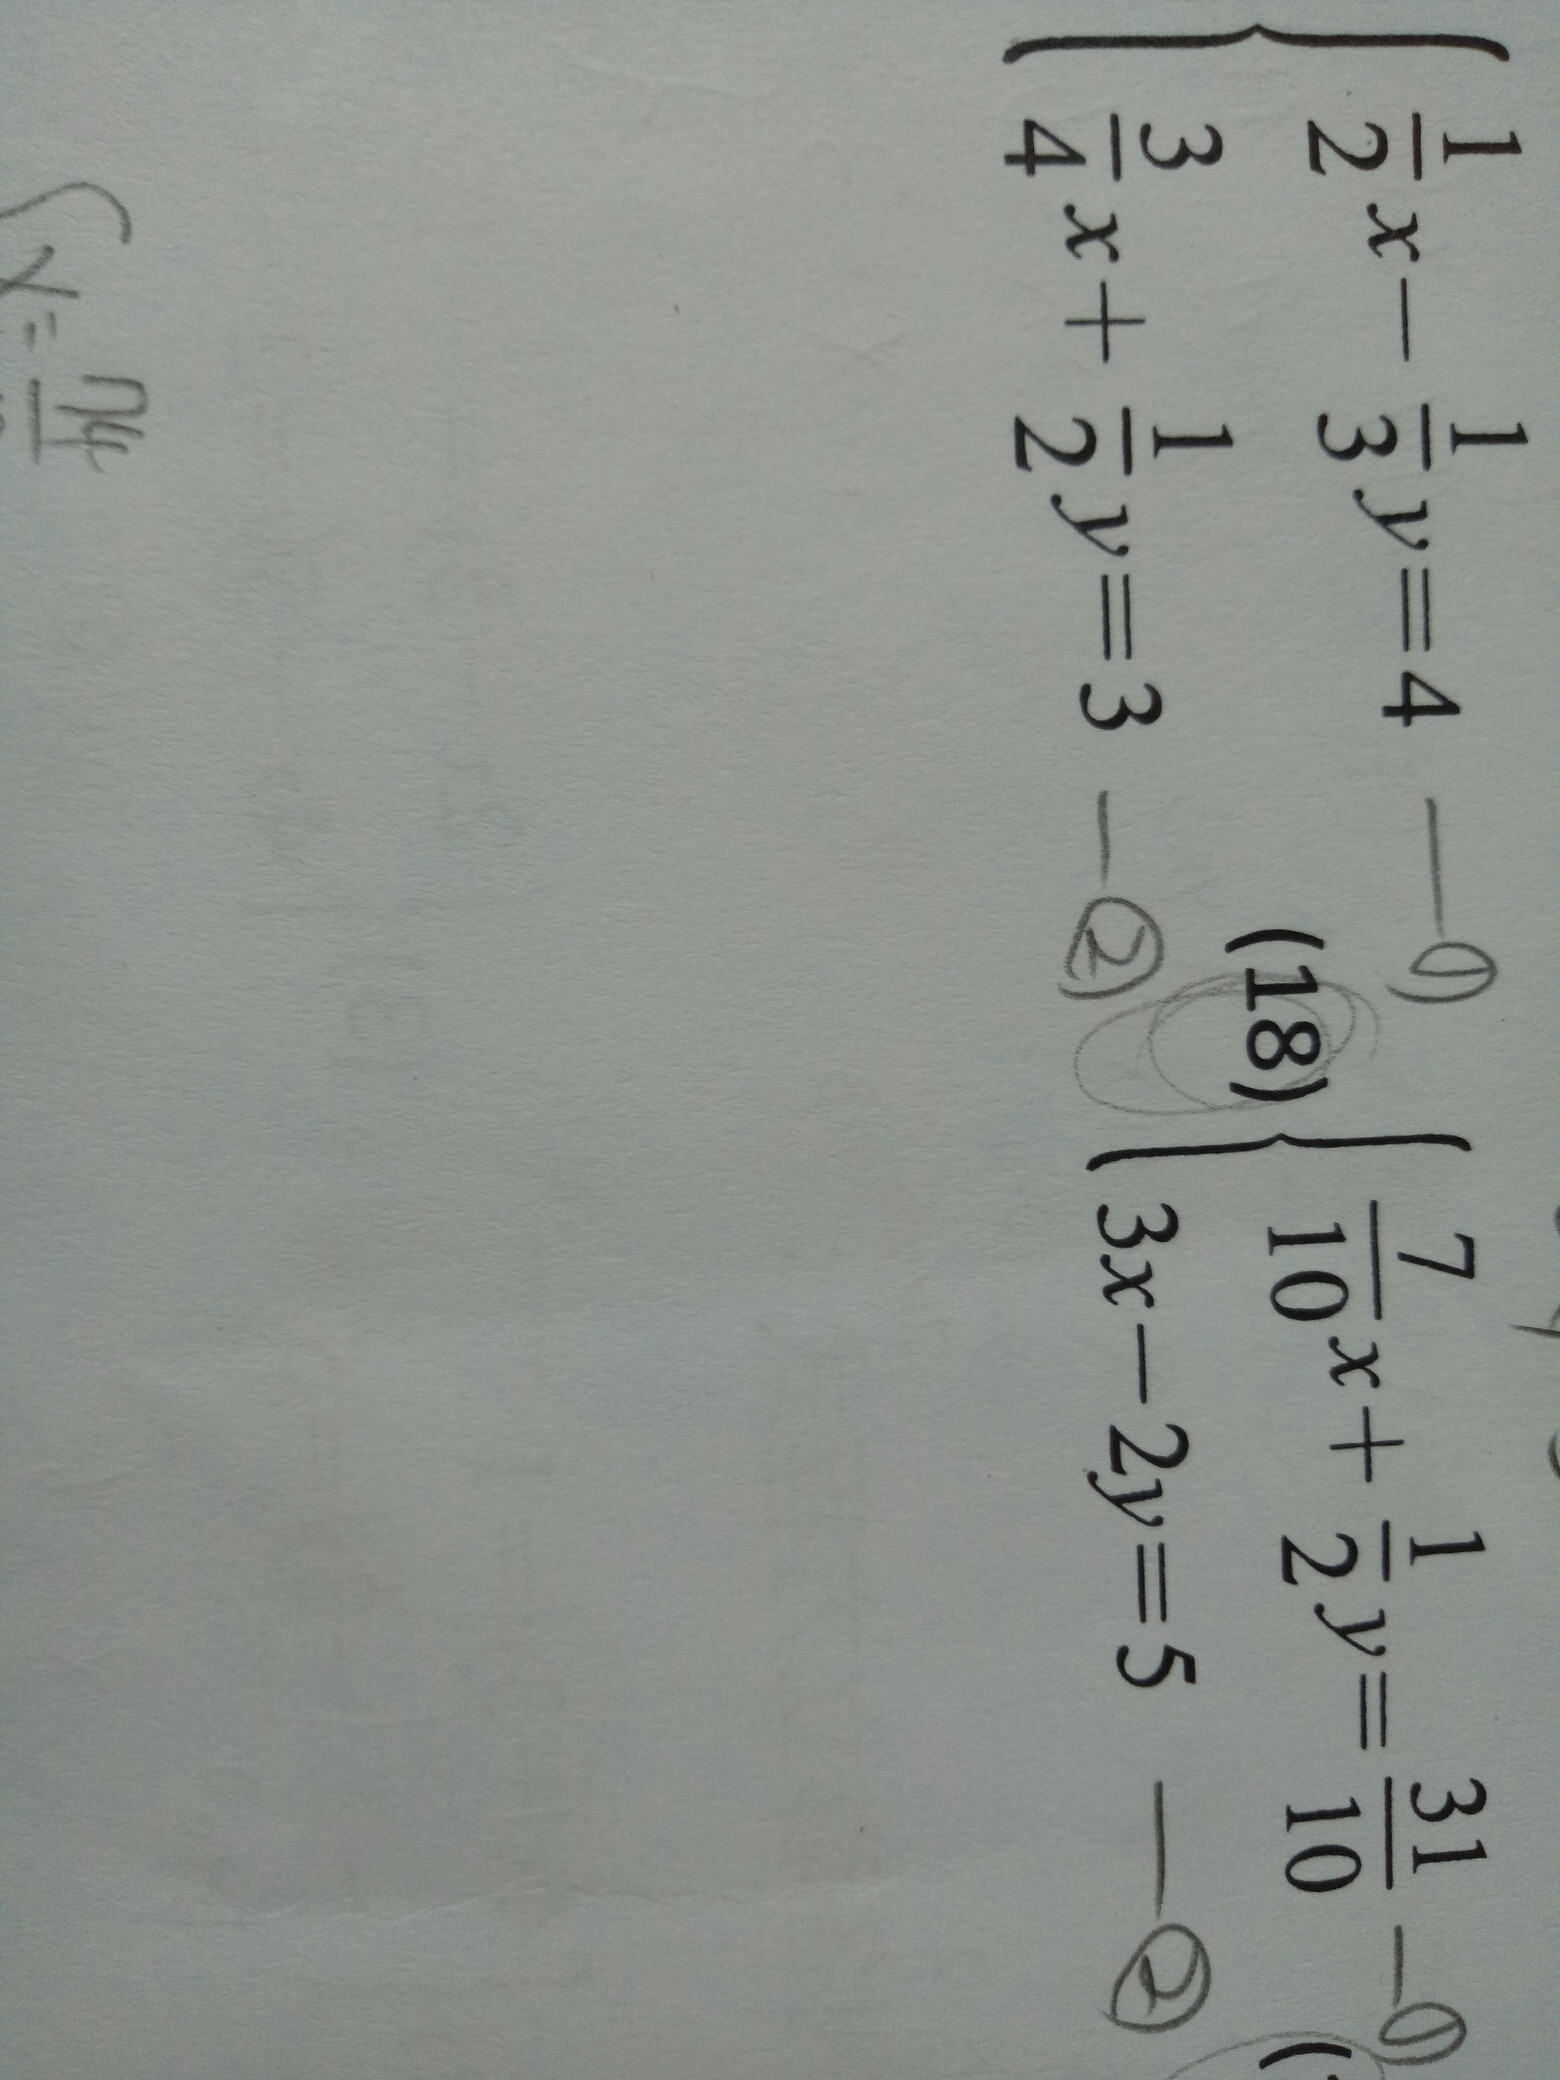 1/2 x − 1/3 y = 4 — ①
3/4 x + 1/2 y = 3 — ②
(18)
7/10 x + 1/2 y = 31/10 — ①
3x − 2y = 5 — ②
x =